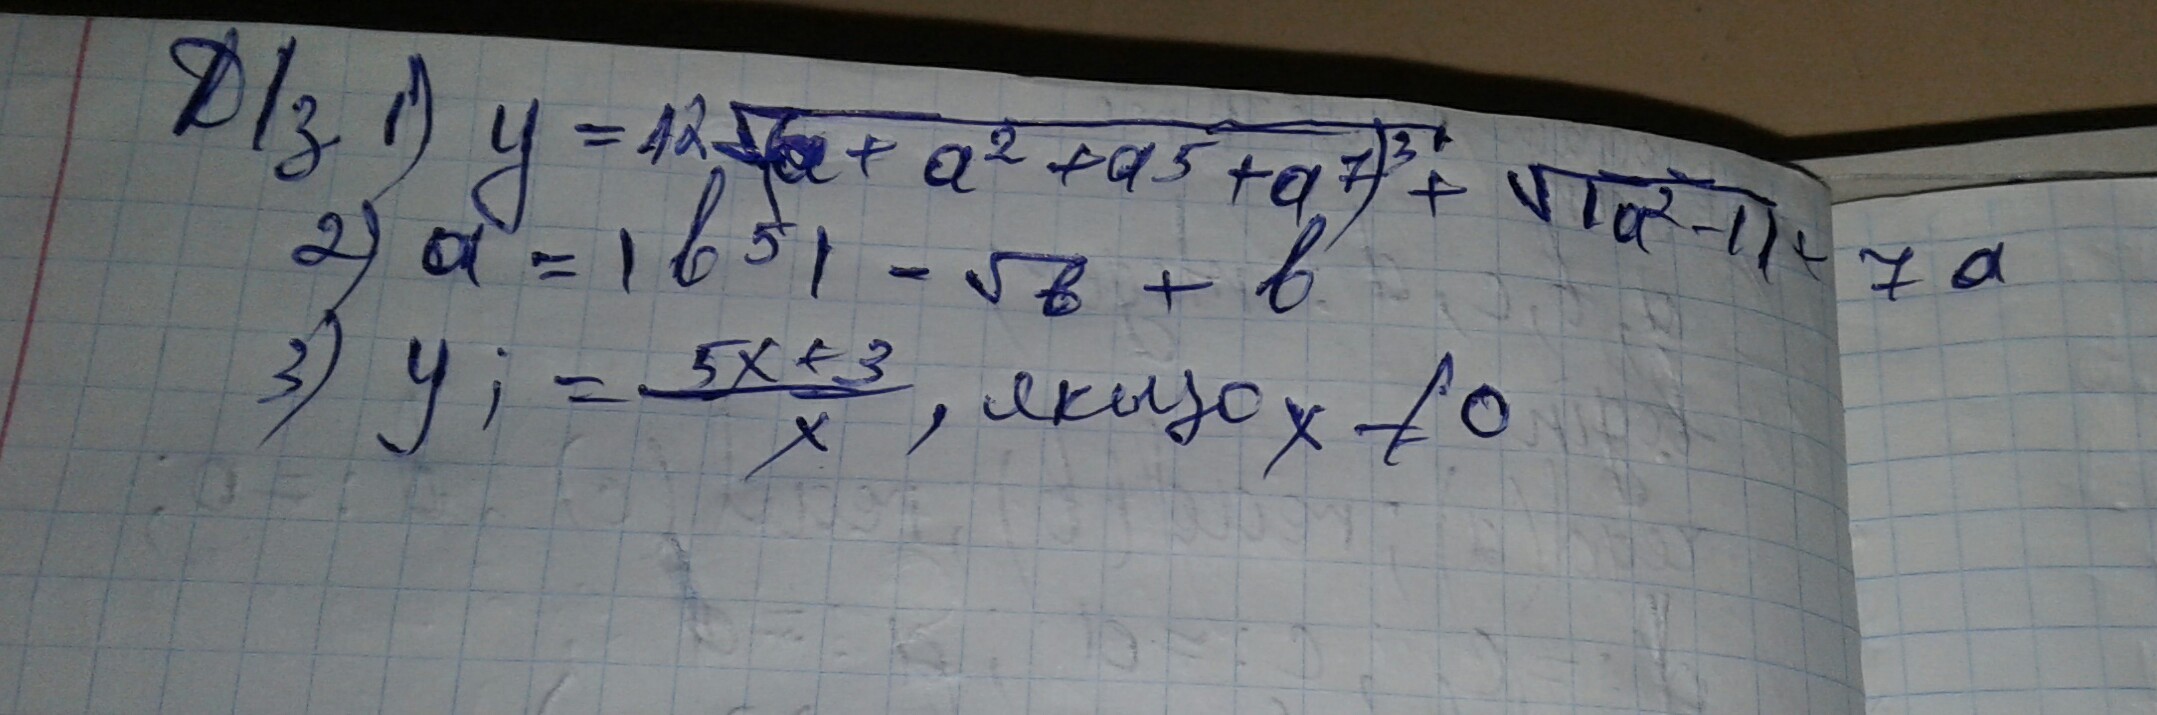 Д/з 1) y = 12√(a + a² + a5 + a7)³ + √|a²-1| + 7a
2) a = |b5| - √b + b
3) y ; = (5x+3)/x , якщо x ≠ 0